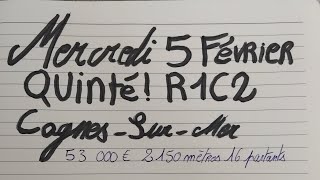 Mercredi 5 FÉVRIER
QUINTÉ! R1C2
Cagnes-Sur-Mer
53 000 € 2150 mètres 16 partants